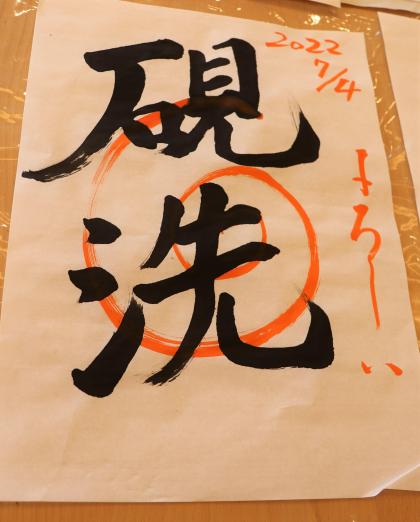 硯洗
2022
7/4
よろしい